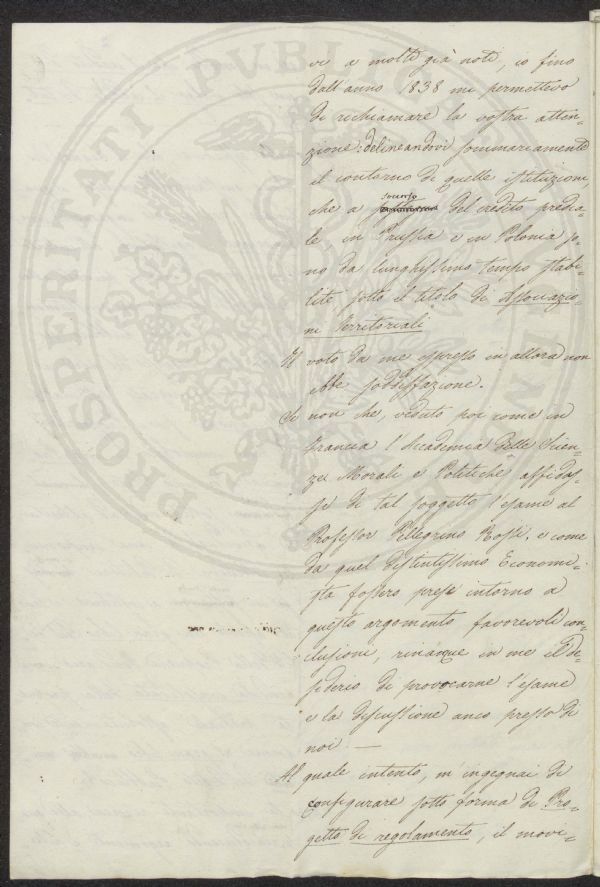 PROSPERITATI PVBLICAE
vi a molti già noti, io fino
dall'anno 1838 mi permettevo
di richiamare la vostra atten=
zione: delineandovi sommariamente
il contorno di quelle istituzioni,
soccorso
che a del credito predia=
le in Prussia e in Polonia so=
no da lunghissimo tempo stabi=
lite sotto il titolo di Associazio=
ni Territoriali
Il voto da me espresso in allora non
ebbe soddisfazione.
Se non che, veduto poi come in
Francia l'Accademia delle Scien=
ze Morali e Politiche affidas=
se di tal soggetto l'esame al
Professor Pellegrino Rossi, e come
da quel distintissimo Economi=
sta fossero prese intorno a
questo argomento favorevoli con=
clusioni, rinacque in me il de=
siderio di provocarne l'esame
e la discussione anco presso di
noi. —
Al quale intento, m'ingegnai di
configurare sotto forma di Pro=
getto di regolamento, il movi=